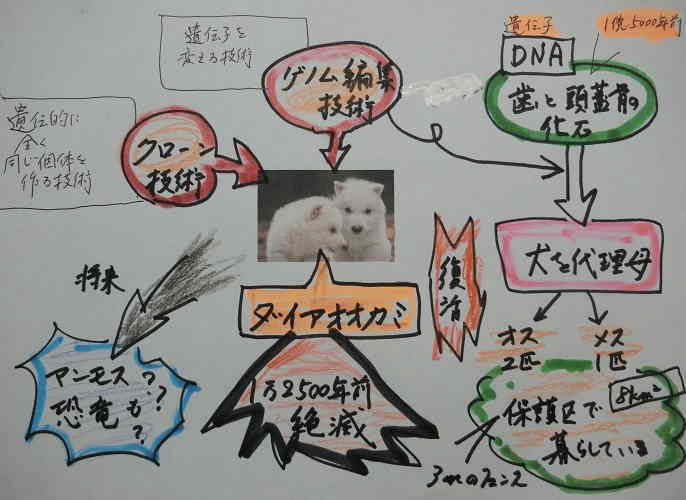 遺伝子を
変える技術
ゲノム編集
技術
遺伝子
DNA
1億5000年前
歯と頭蓋骨の
化石
遺伝的に
全く
同じ個体を
作る技術
クローン
技術
犬を代理母
復活
将来
ダイアオオカミ
オス
2匹
メス
1匹
マンモス?
恐竜も?
?
1万2500年前
絶滅
8km²
保護区で
暮らしている
3mのフェンス